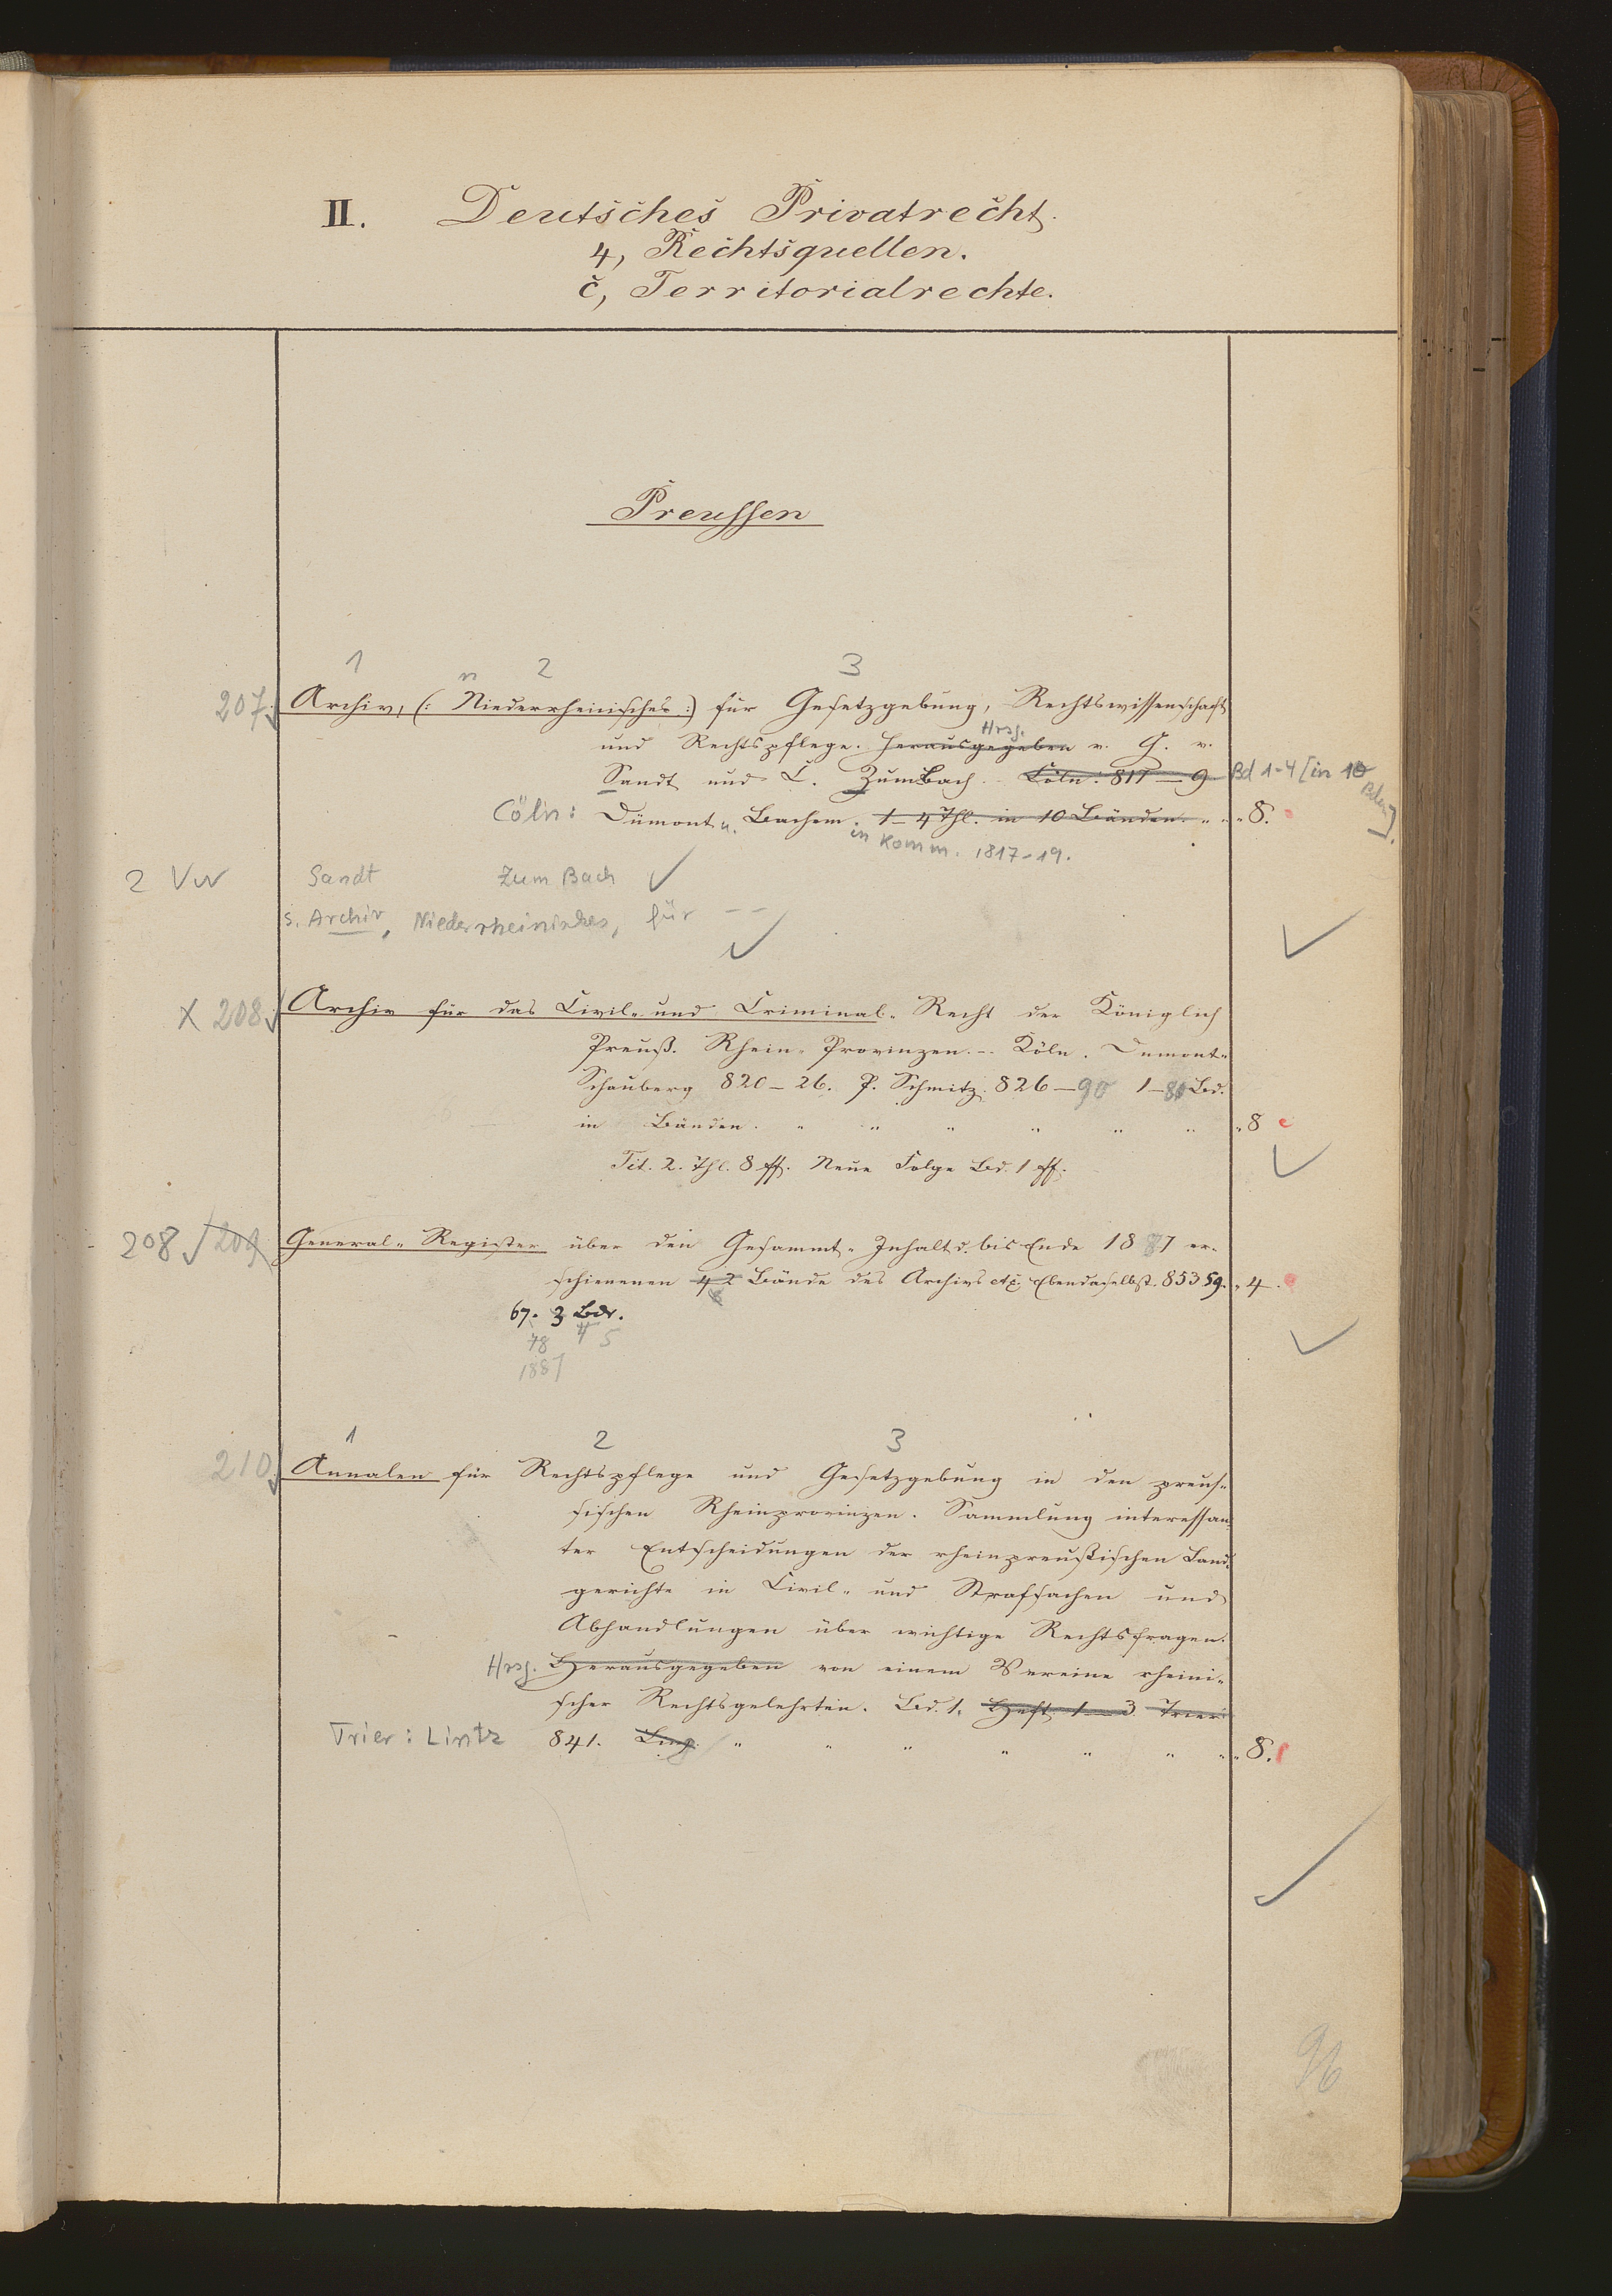 II. Deutsches Privatrecht.
4, Rechtsquellen.
c, Territorialrechte.
Preussen
1 2 3
n
207. Archiv, (: Niederrheinisches :) für Gesetzgebung, Rechtswissenschaft
Hrsg.
und Rechtspflege. Herausgegeben v. G. v.
Sandt und C. Zumbach. Cöln: 817–9 Bd 1-4 [in 10 Bden].
Cöln: Dümont u. Bachem. 1–4 Thl. in 10 Bänden. " " 8.
in Komm. 1817-19.
2 VW Sandt Zum Bach
s. Archiv, Niederrheinisches, für --
X 208. Archiv für das Civil- und Criminal- Recht der Königlich
Preuß. Rhein- Provinzen. – Köln. Dumont-
Schauberg 820–26. P. Schmitz. 826–90 1–81 Bd.
in Bänden. " " " " " " " 8
Tit. 2. Thl. 8 ff. Neue Folge Bd. 1 ff.
208 209 General- Register über den Gesammt- Inhalt d. bis Ende 1887 er-
schienenen 42 Bände des Archivs etc. Ebendaselbst. 853 59. " 4.
67. 3 Bde.
78 4 5
1887
1 2 3
210. Annalen für Rechtspflege und Gesetzgebung in den preus-
sischen Rheinprovinzen. Sammlung interessan-
ter Entscheidungen der rheinpreußischen Land-
gerichte in Civil- und Strafsachen und
Abhandlungen über wichtige Rechtsfragen.
Hrsg. Herausgegeben von einem Vereine rheini-
scher Rechtsgelehrten. Bd. 1. Heft 1–3 Trier:
Trier: Lintz 841. " " " " " " " 8.
96